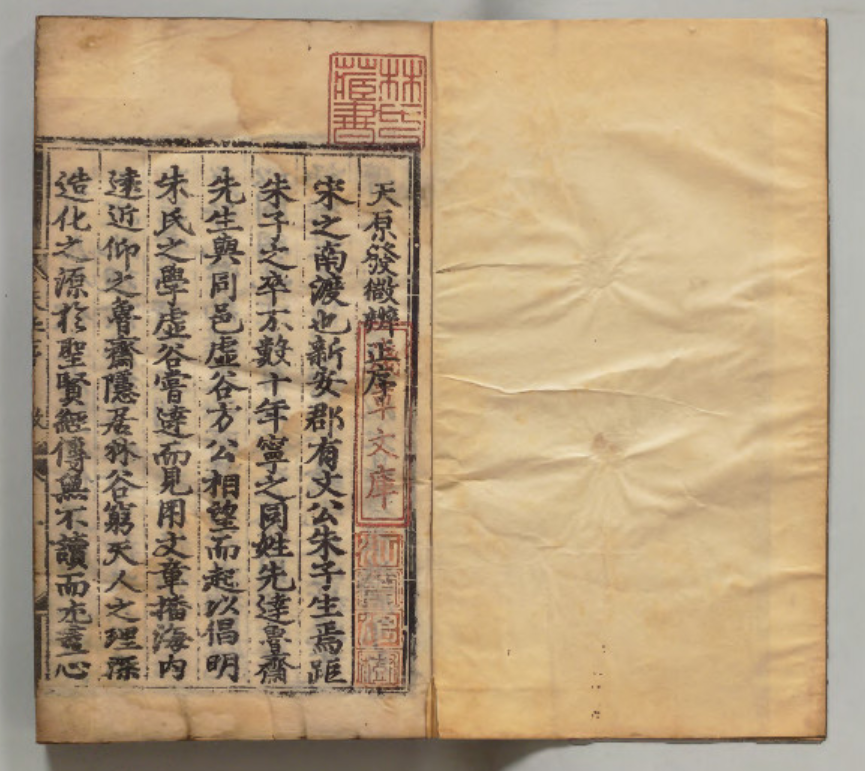 天原發微辨正序
宋之南渡也新安郡有文公朱子生焉距
朱子之卒不數十年寧之同姓先達魯齋
先生與同邑虛谷方公相望而起以倡明
朱氏之學虛谷嘗達而見用文章播海內
遠近仰之魯齋隱居林谷窮天人之理深
造化之源於聖賢經傳無不讀而尤盡心
林氏藏書
文庫